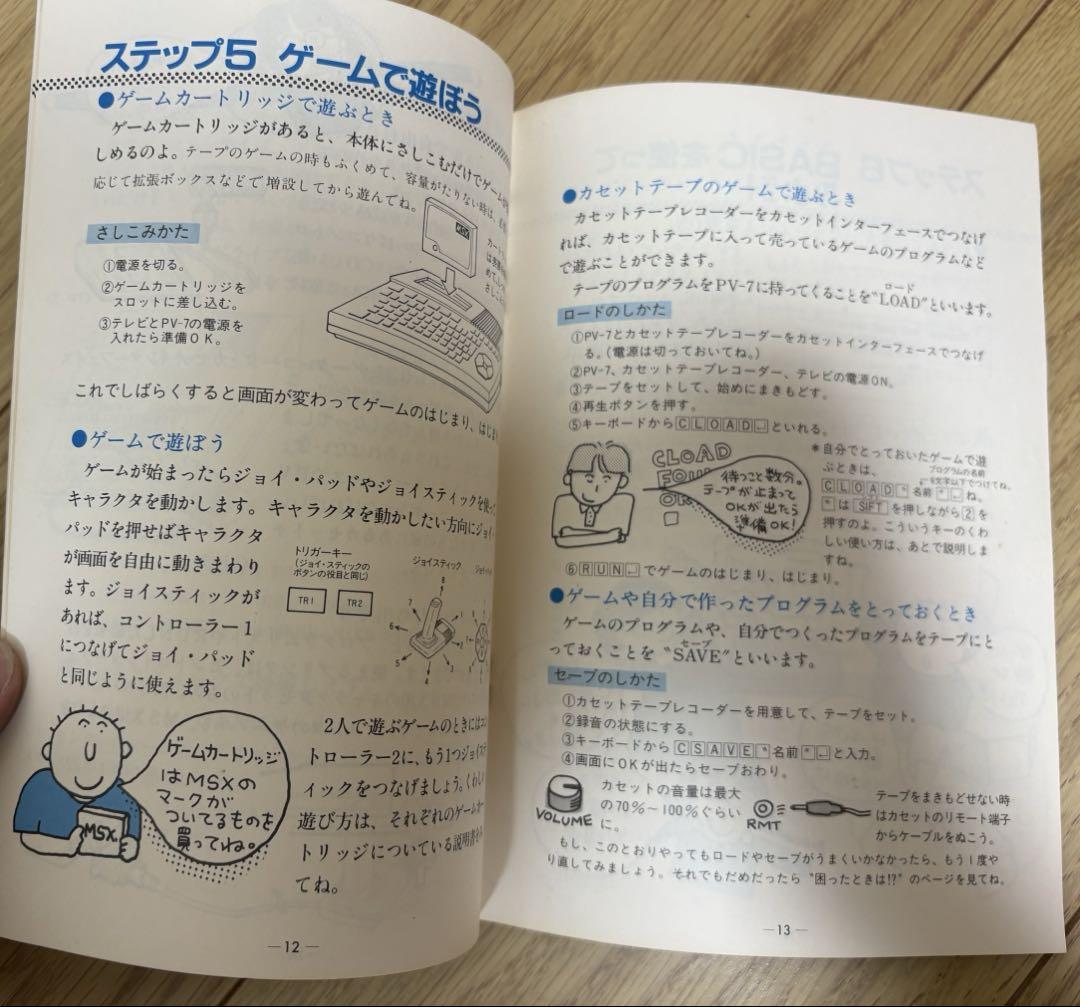 ステップ5 ゲームで遊ぼう
●ゲームカートリッジで遊ぶとき
ゲームカートリッジがあると、本体にさしこむだけでゲームが
しめるのよ。テープのゲームの時もふくめて、容量がたりない時は、
応じて拡張ボックスなどで増設してから遊んでね。
さしこみかた
①電源を切る。
②ゲームカートリッジを
スロットに差し込む。
③テレビとPV-7の電源を
入れたら準備OK。
MSX
これでしばらくすると画面が変わってゲームのはじまり、はじま
●ゲームで遊ぼう
ゲームが始まったらジョイ・パッドやジョイスティックを使っ
キャラクタを動かします。キャラクタを動かしたい方向にジョイ・
パッドを押せばキャラクタ
が画面を自由に動きまわり
ます。ジョイスティックが
あれば、コントローラー1
につなげてジョイ・パッド
と同じように使えます。
トリガーキー
(ジョイ・スティックの
ボタンの役目と同じ)
TR1 TR2
ジョイスティック
8
7 1
6 2
5 3
4
2人で遊ぶゲームのときにはコン
トローラー2に、もう1つジョイステ
ィックをつなげましょう。くわしい
遊び方は、それぞれのゲームカー
トリッジについている説明書を
てね。
ゲームカートリッジ
はMSXの
マークが
ついてるものを
買ってね。
MSX
—12—
●カセットテープのゲームで遊ぶとき
カセットテープレコーダーをカセットインターフェースでつなげ
れば、カセットテープに入って売っているゲームのプログラムなど
で遊ぶことができます。
ロード
テープのプログラムをPV-7に持ってくることを“LOAD”といいます。
ロードのしかた
①PV-7とカセットテープレコーダーをカセットインターフェースでつなげ
る。(電源は切っておいてね。)
②PV-7、カセットテープレコーダー、テレビの電源ON。
③テープをセットして、始めにまきもどす。
④再生ボタンを押す。
⑤キーボードからCLOAD↵といれる。
CLOAD
FOU
OK
待つこと数分。
テープが止まって
OKが出たら
準備OK!
＊自分でとっておいたゲームで遊
ぶときは、
プログラムの名前
6文字以下でつけてね。
CLOAD" 名前 "↵ね。
"は SIFT を押しながら2を
押すのよ。こういうキーのくわ
しい使い方は、あとで説明しま
すね。
⑥RUN↵でゲームのはじまり、はじまり。
●ゲームや自分で作ったプログラムをとっておくとき
ゲームのプログラムや、自分でつくったプログラムをテープにと
セーブ
っておくことを “SAVE”といいます。
セーブのしかた
①カセットテープレコーダーを用意して、テープをセット。
②録音の状態にする。
③キーボードから CSAVE" 名前 "↵と入力。
④画面にOKが出たらセーブおわり。
VOLUME
カセットの音量は最大
の70%〜100%ぐらい
に。
RMT
テープをまきもどせない時
はカセットのリモート端子
からケーブルをぬこう。
もし、このとおりやってもロードやセーブがうまくいかなかったら、もう1度や
り直してみましょう。それでもだめだったら “困ったときは!?”のページを見てね。
—13—